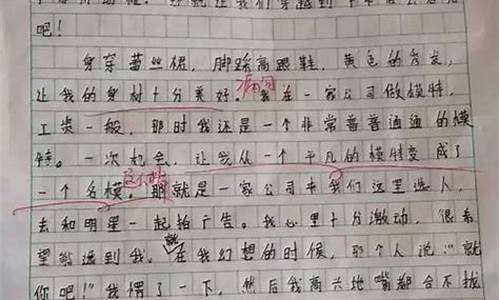 就让我们穿越到
吧！
身穿蕾丝裙，脚踩高跟鞋，黄色的秀发，
让我的身材十分美好。我在一家公司做模特，
病句
工资一般，那时我还是一个非常普普通通的模
特。一次机会，让我从一个平凡的模特变成了
一个名模。那就是一家公司来我们这里选人，
去和明星一起拍广告。我心里十分激动，很希
望能选到我。就在我幻想的时候，那个人说："就
你吧！"我愣了一下，然后我高兴地嘴都合不拢